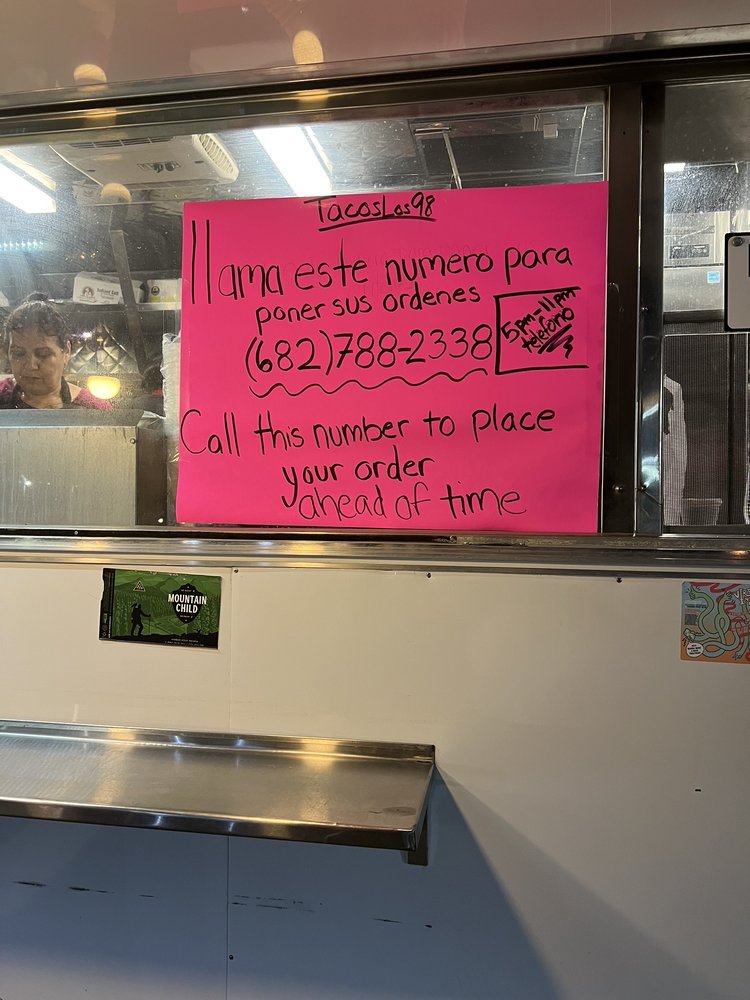 TacosLos98
llama este numero para
poner sus ordenes
(682)788-2338
5pm-11pm
telefono
Call this number to place
your order
ahead of time
MOUNTAIN
CHILD